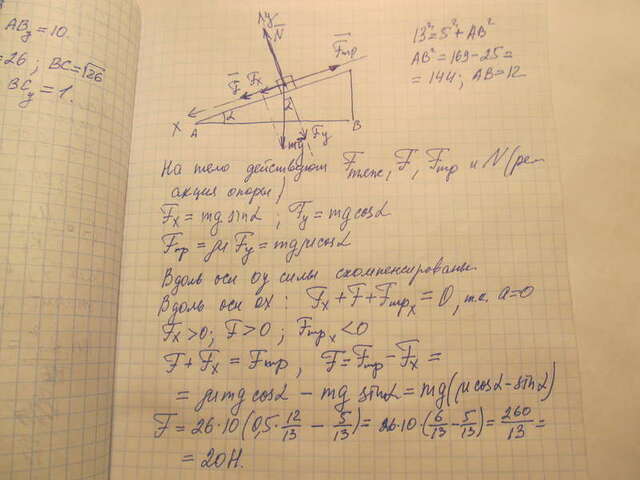 AB_y = 10.
= 26 ; BC = √26
BC_y = 1.
13² = 5² + AB²
AB² = 169 - 25 =
= 144 ; AB = 12
y
N̄
F̄тр
F̄ Fx
X A α α B
mg F̄y
На тело действуют F̄тяж, F̄, F̄тр и N̄ (ре-
акция опоры)
Fx = mg sinα ; Fy = mg cosα
Fтр = μ Fy = mg μ cosα
Вдоль оси oy силы скомпенсированы.
Вдоль оси ox : Fx + F + Fтрx = 0, т.к. a = 0
Fx > 0 ; F > 0 ; Fтрx < 0
F + Fx = Fтр , F = Fтр - Fx =
= μ mg cosα - mg sinα = mg (μ cosα - sinα)
F = 26·10 (0,5 · 12/13 - 5/13) = 26·10 · (6/13 - 5/13) = 260/13 =
= 20 Н.